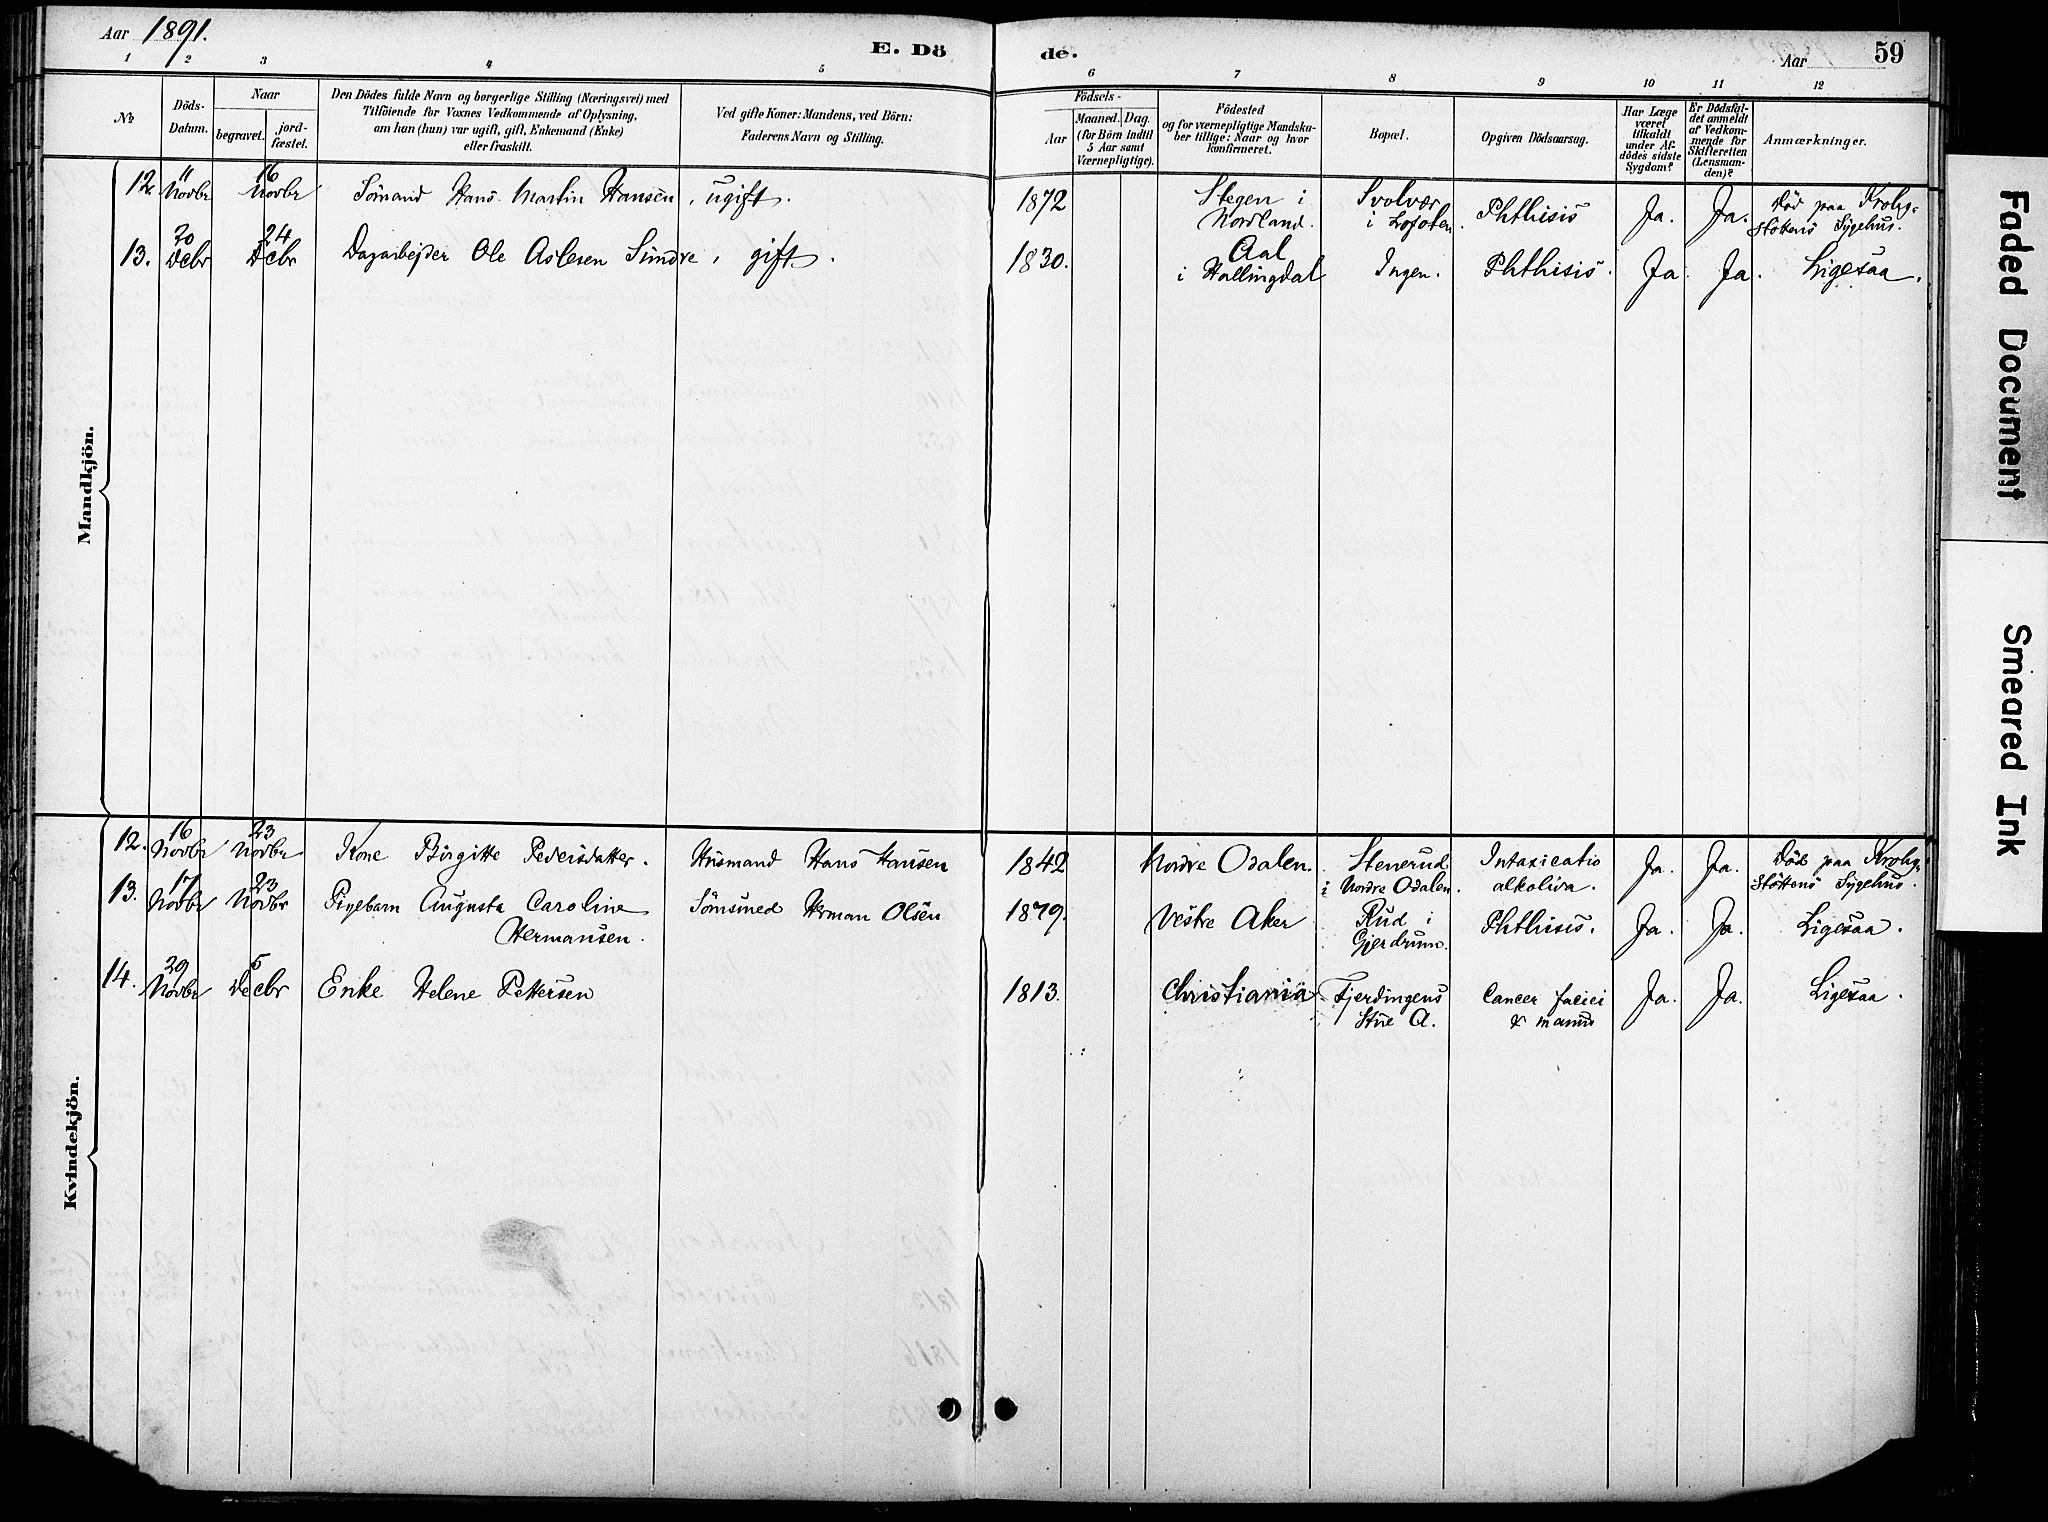 Aar 1891.
E. Dö
de.
Aar
59
1 2 3 4 5 6 7 8 9 10 11 12
№
Döds-
Datum.
Naar
begravet.
jord-
fæstet.
Den Dödes fulde Navn og borgerlige Stilling (Næringsvei) med
Tilföiende for Voxnes Vedkommende af Oplysning,
om han (hun) var ugift, gift, Enkemand (Enke)
eller fraskilt.
Ved gifte Koner: Mandens, ved Börn:
Faderens Navn og Stilling.
Födsels-
Aar
Maaned. Dag.
(for Börn indtil
5 Aar samt
Værnepligtige).
Födested
og for værnepligtige Mandska-
ber tillige: Naar og hvor
konfirmeret.
Bopæl.
Opgiven Dödsaarsag.
Har Læge
været
tilkaldt
under Af-
dödes sidste
Sygdom?
Er Dödsfal-
det anmeldt
af Vedkom-
mende for
Skifteretten
(Lensman-
den)?
Anmærkninger.
Mandkjön.
12. 11 Novbr 16 Novbr Sömand Hans Martin Hansen, ugift. 1872 Stegen i Nordland. Svolvær i Lofoten. Phthisis Ja. Ja. Död paa Krohg-
stöttens Sygehus.
13. 20 Decbr 24 Decbr Dagarbejder Ole Aslesen Sundre, gift. 1830. Aal i Hallingdal Ingen. Phthisis. Ja. Ja. Ligesaa.
Kvindekjön.
12. 16 Novbr 23 Novbr Kone Birgitte Pedersdatter. Husmand Hans Hansen 1842 Nordre Odalen. Stenerud i Nordre Odalen. Intoxicatio alkolica. Ja. Ja. Död paa Krohg-
stöttens Sygehus.
13. 17 Novbr 23 Novbr Pigebarn Augusta Caroline
Hermansen. Sömsmed Herman Olsen 1879. Vestre Aker Rud i Gjerdrum. Phthisis. Ja. Ja. Ligesaa.
14. 29 Novbr 5 Decbr Enke Helene Pettersen 1813. Christiania Fjerdingens Stue A. Cancer faciei & manus Ja. Ja. Ligesaa.
Faded Document
Smeared Ink